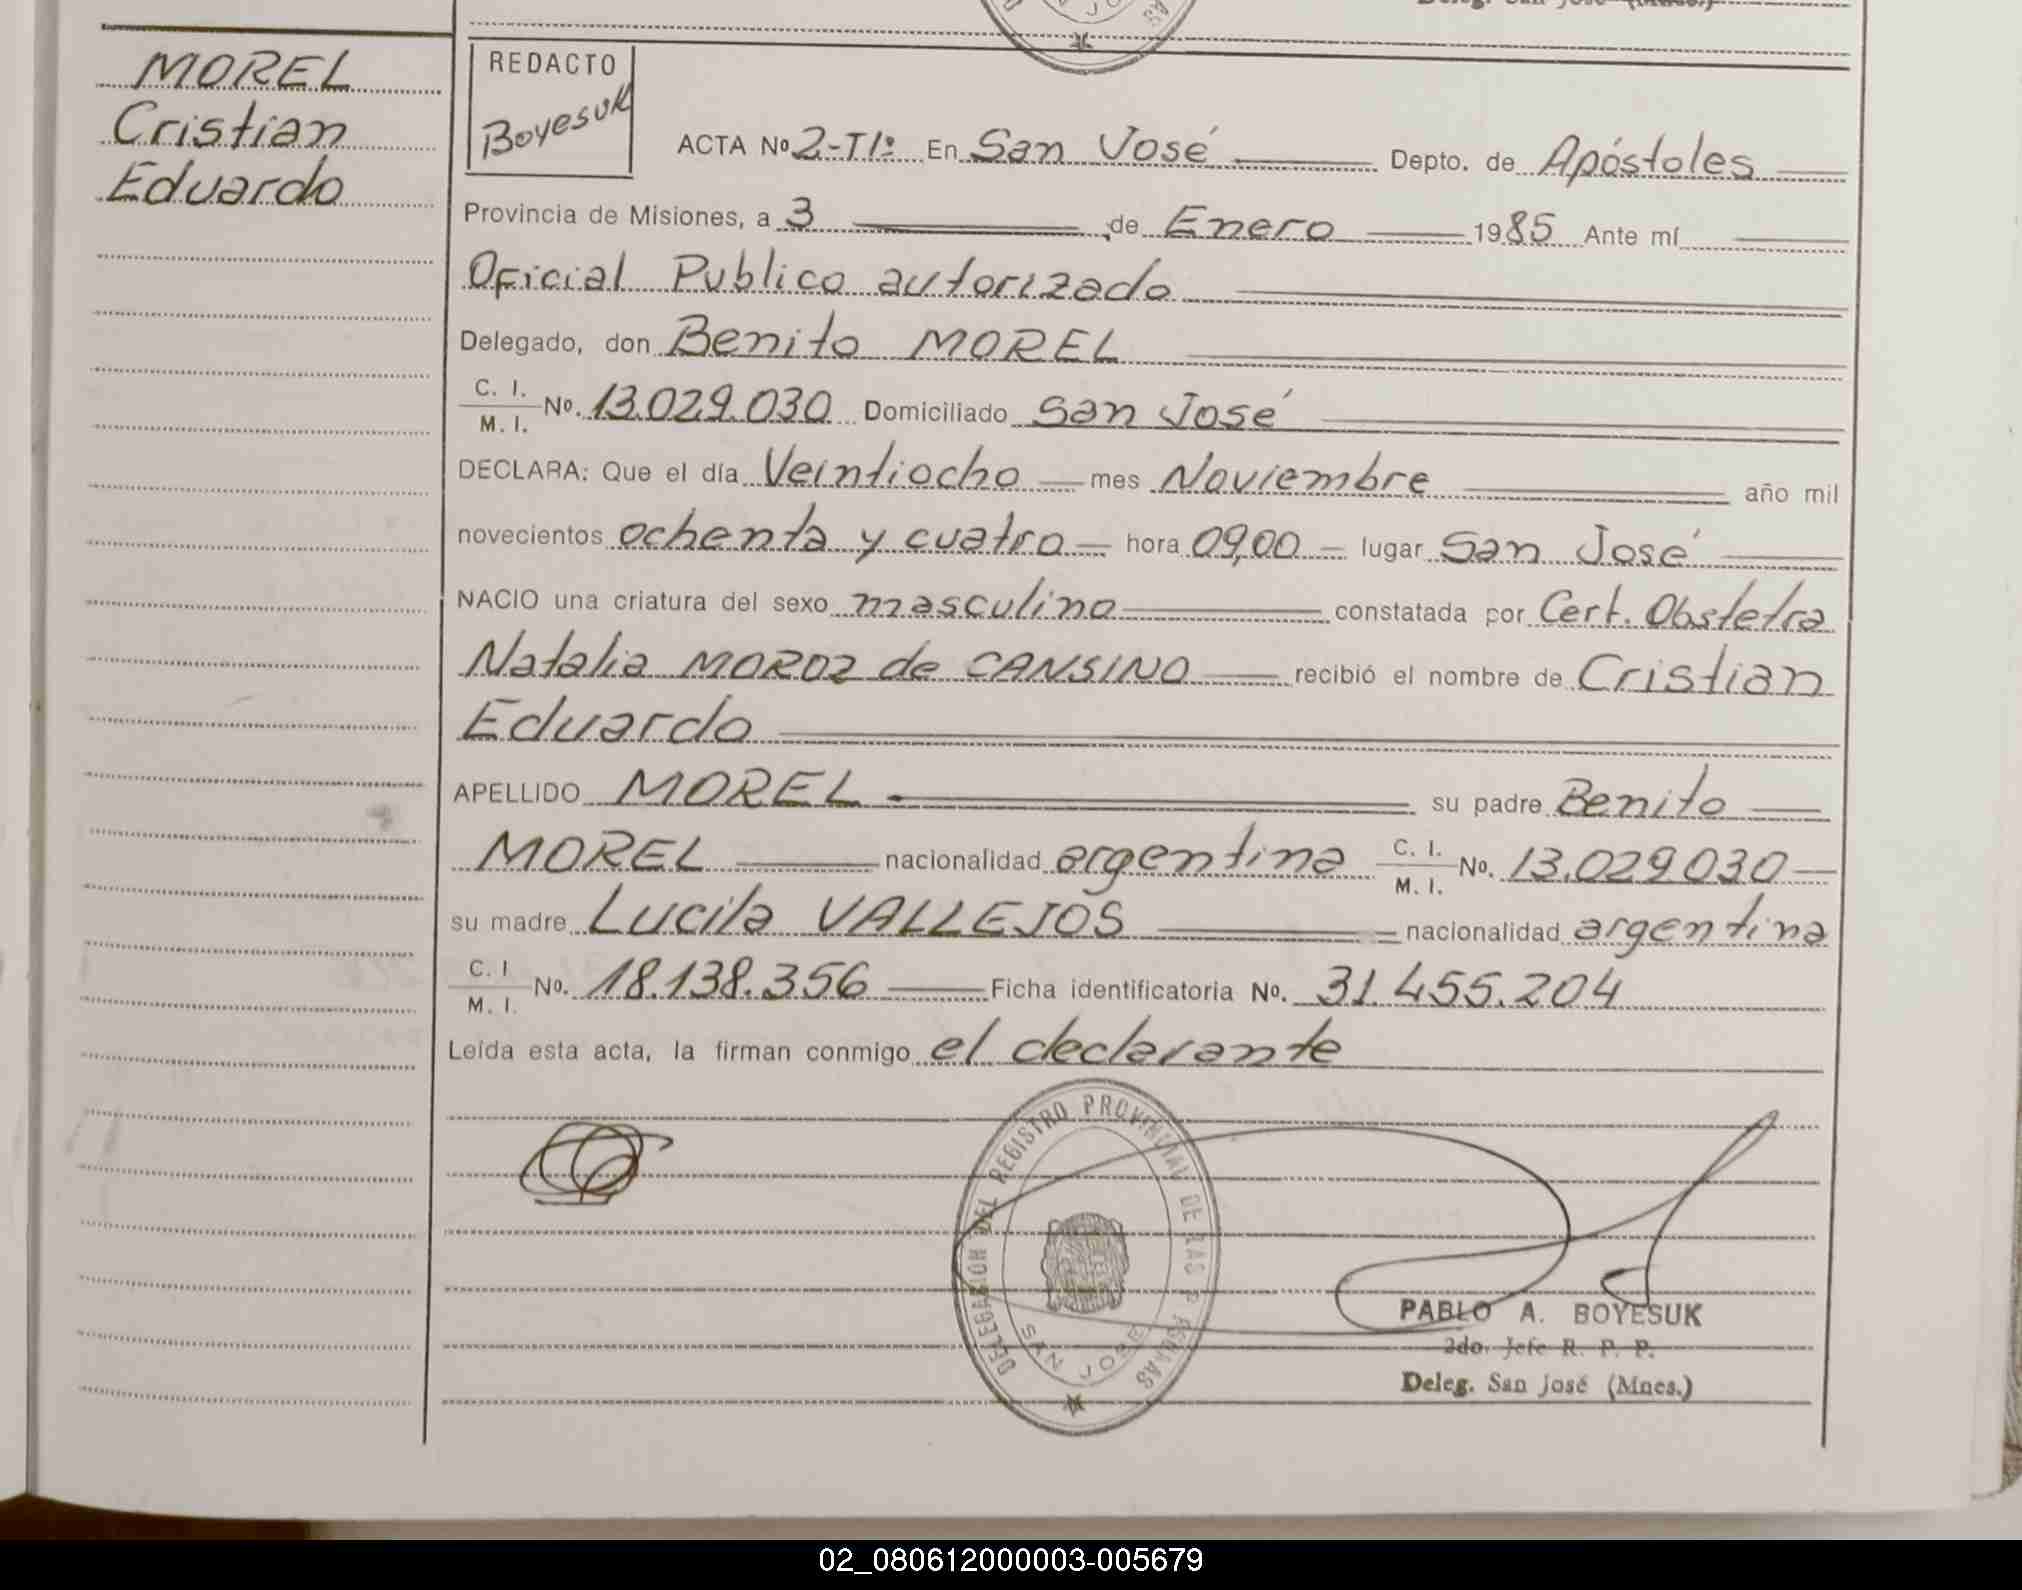 Deleg. San José (Mnes.)
MOREL
Cristian
Eduardo
REDACTO
Boyesuk
ACTA Nº 2-T1º En San José Depto. de Apóstoles
Provincia de Misiones, a 3 de Enero 1985 Ante mí
Oficial Publico autorizado
Delegado, don Benito MOREL
C. I. M. I. No. 13.029.030 Domiciliado San José
DECLARA: Que el día Veintiocho mes Noviembre año mil
novecientos ochenta y cuatro hora 09,00 lugar San José
NACIO una criatura del sexo masculino constatada por Cert. Obstetra
Natalia MOROZ de CANSINO recibió el nombre de Cristian
Eduardo
APELLIDO MOREL su padre Benito
MOREL nacionalidad argentina C. I. M. I. No. 13.029030
su madre Lucila VALLEJOS nacionalidad argentina
C. I M. I. No. 18.138.356 Ficha identificatoria No. 31.455.204
Leída esta acta, la firman conmigo el declarante
DELEGACION DEL REGISTRO PROVINCIAL DE LAS PERSONAS
SAN JOSE
PABLO A. BOYESUK
2do. Jefe R. P. P.
Deleg. San José (Mnes.)
02_080612000003-005679